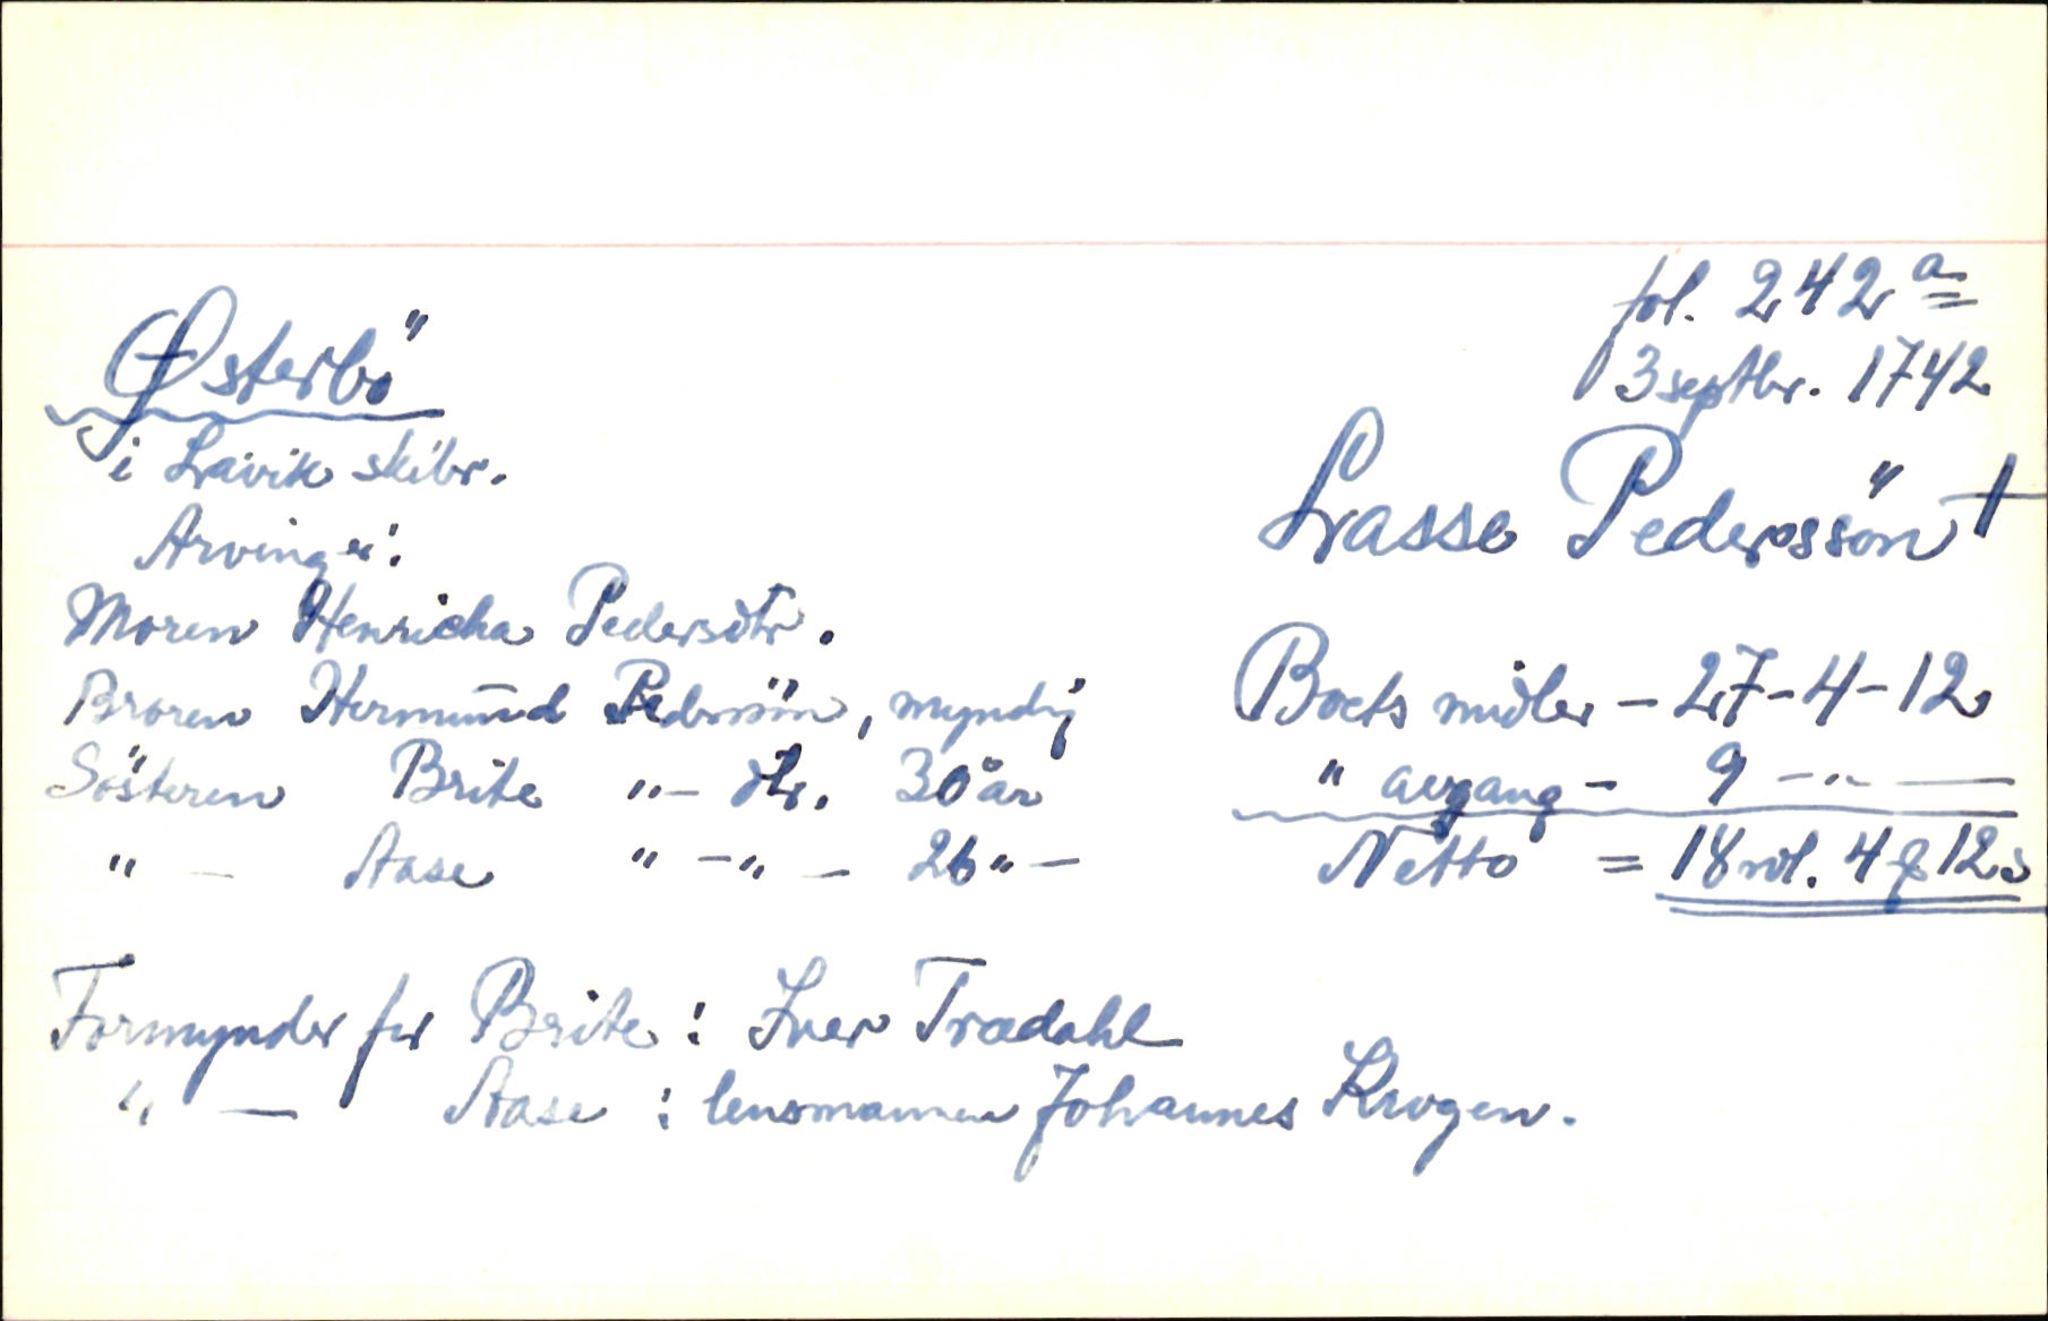 fol. 242 a
3 septbr. 1742
Østerbö
i Lavik skibr.
Lasse Pederssön †
Arvinger:
Moren Henricha Pedersdtr.
Broren Hermund Pedersön, myndig
Sösteren Brite "— dtr. 30 år
" — Aase " —"— 26 " —
Boets midler — 27-4-12
" avgang — 9 -"- —
Netto = 18 rdl. 4 ƒ 12 s
Formynder for Brite: Iver Trædahl
" — Aase: lensmannen Johannes Krogen.